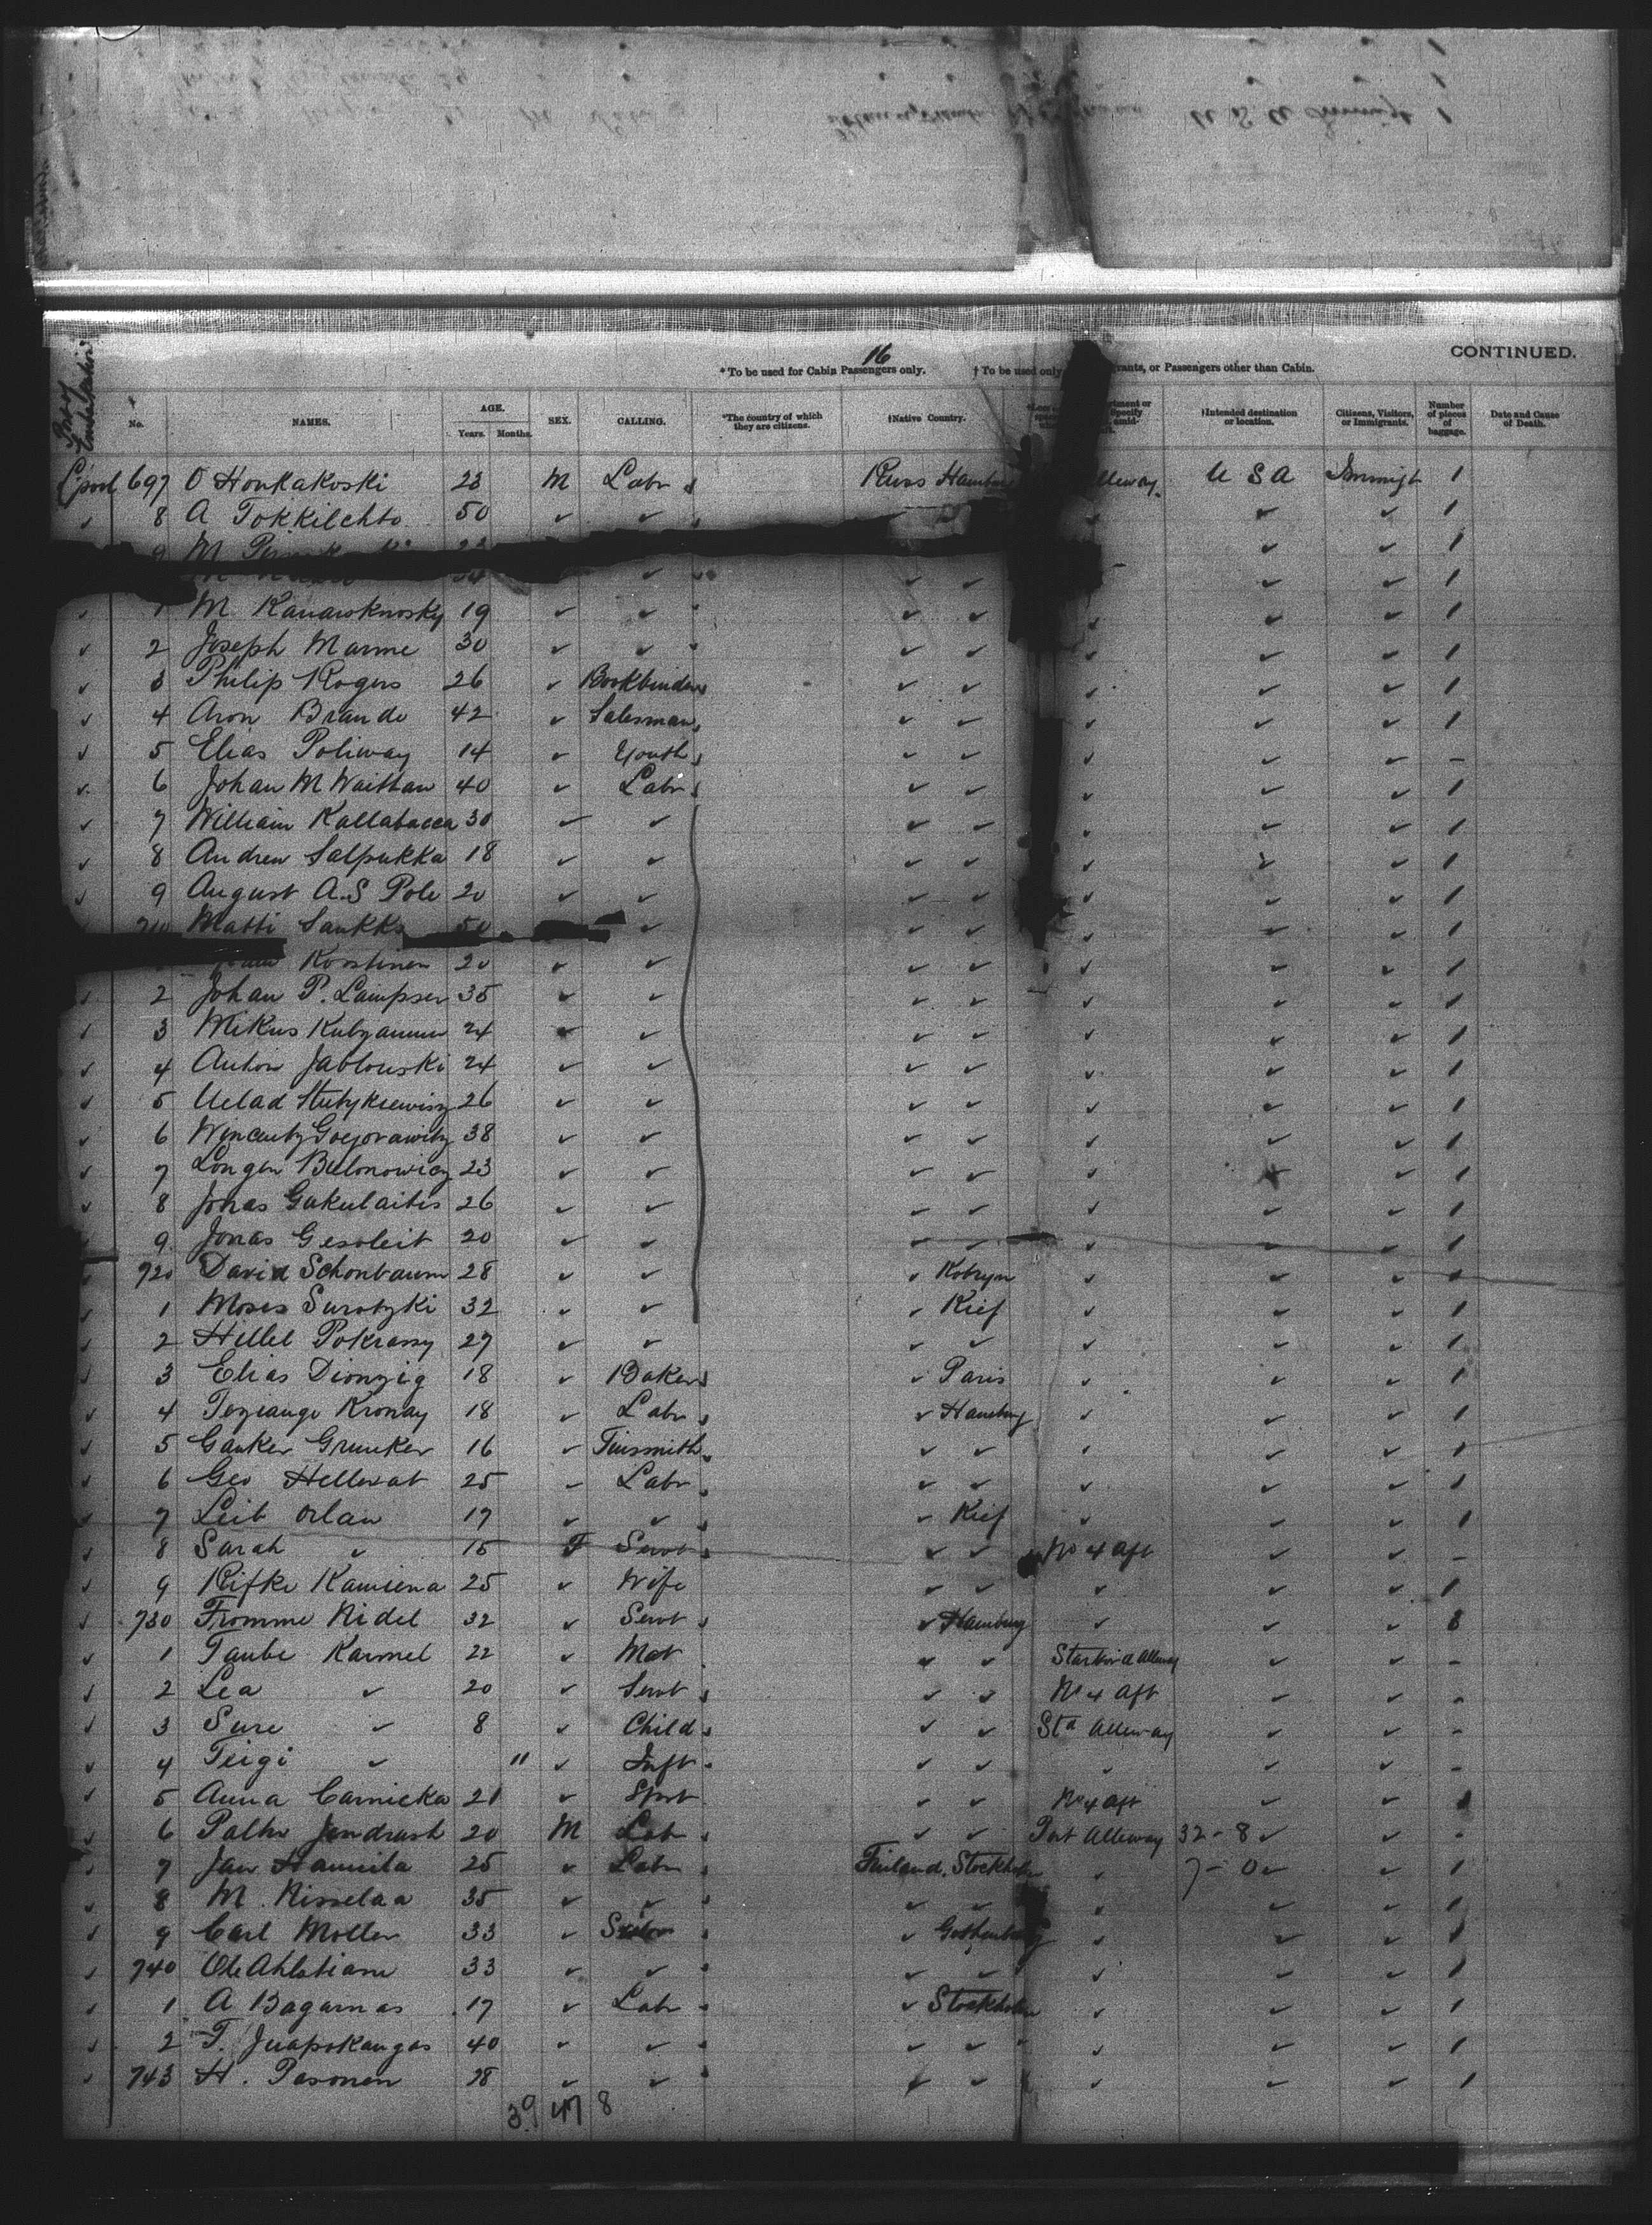 16
CONTINUED.
* To be used for Cabin Passengers only. † To be used only grants, or Passengers other than Cabin.
Port Embarkation No. NAMES. AGE. Years. Months. SEX. CALLING. *The country of which they are citizens. †Native Country. †Intended destination or location. Citizens, Visitors, or Immigrants. Number of pieces of baggage. Date and Cause of Death.
L'pool 697 O Honkakoski 23 M Labr Russ Hamburg Alleway U S A Immigt 1
✓ 8 A Tokkilehto 50 ✓ ✓ ✓ ✓ 1
9 M ✓ ✓ 1
M 34 ✓ ✓ ✓ ✓ ✓ 1
✓ 1 M Kanawknosky 19 ✓ ✓ ✓ ✓ ✓ ✓ ✓ 1
✓ 2 Joseph Marme 30 ✓ ✓ ✓ ✓ ✓ ✓ ✓ 1
✓ 3 Philip Rogers 26 ✓ Bookbinder ✓ ✓ ✓ ✓ ✓ 1
✓ 4 Aron Brande 42 ✓ Salesman ✓ ✓ ✓ ✓ ✓ 1
✓ 5 Elias Poliway 14 ✓ Youth ✓ ✓ ✓ ✓ ✓ -
✓ 6 Johan M Waittaw 40 ✓ Labr ✓ ✓ ✓ ✓ ✓ 1
✓ 7 William Kallabacca 30 ✓ ✓ ✓ ✓ ✓ ✓ ✓ 1
✓ 8 Andrew Salpukka 18 ✓ ✓ ✓ ✓ ✓ ✓ ✓ 1
✓ 9 August A.S Pole 20 ✓ ✓ ✓ ✓ ✓ ✓ ✓ 1
710 Matti Saukko 50 ✓ ✓ ✓ ✓ ✓ ✓ 1
Kostinen 20 ✓ ✓ ✓ ✓ ✓ ✓ ✓ 1
✓ 2 Johan P. Lampsen 35 ✓ ✓ ✓ ✓ ✓ ✓ ✓ 1
✓ 3 Mikus 24 ✓ ✓ ✓ ✓ ✓ ✓ ✓ 1
✓ 4 Anton Jablouski 24 ✓ ✓ ✓ ✓ ✓ ✓ ✓ 1
✓ 5 Uclad 26 ✓ ✓ ✓ ✓ ✓ ✓ ✓ 1
✓ 6 Wencenty 38 ✓ ✓ ✓ ✓ ✓ ✓ ✓ 1
✓ 7 Longen Bulonowicz 23 ✓ ✓ ✓ ✓ ✓ ✓ ✓ 1
✓ 8 Jonas Gukulaitis 26 ✓ ✓ ✓ ✓ ✓ ✓ ✓ 1
9 Jonas Gesoleit 20 ✓ ✓ ✓ ✓ ✓ ✓ ✓ 1
720 David Schonbaum 28 ✓ ✓ ✓ Kobryn ✓ ✓ ✓ 1
✓ 1 Moses Surotzki 32 ✓ ✓ ✓ Kief ✓ ✓ ✓ 1
✓ 2 Hillel Pokrassy 27 ✓ ✓ ✓ ✓ ✓ ✓ ✓ 1
✓ 3 Elias Dionzig 18 ✓ Baker ✓ Paris ✓ ✓ ✓ 1
✓ 4 Kronay 18 ✓ Labr ✓ Hamburg ✓ ✓ ✓ 1
✓ 5 Ganker Grunker 16 ✓ Tinsmith ✓ ✓ ✓ ✓ ✓ 1
✓ 6 Geo Hellwat 25 ✓ Labr ✓ ✓ ✓ ✓ ✓ 1
✓ 7 Leib Orlan 17 ✓ ✓ ✓ Kief ✓ ✓ ✓ 1
✓ 8 Sarah ✓ 15 F Servt ✓ ✓ No 4 aft ✓ ✓ -
✓ 9 Rifke Kamiena 25 ✓ Wife ✓ ✓ ✓ ✓ ✓ 1
✓ 730 Fromme Nidel 32 ✓ Servt ✓ Hamburg ✓ ✓ ✓ 3
✓ 1 Taube Karmel 22 ✓ Mat ✓ ✓ Starbord Alleway ✓ ✓ -
✓ 2 Lea ✓ 20 ✓ Servt ✓ ✓ No 4 aft ✓ ✓ -
✓ 3 Sure ✓ 8 ✓ Child ✓ ✓ Std Alleway ✓ ✓ -
✓ 4 Feigi ✓ 11 ✓ Inft ✓ ✓ ✓ ✓ ✓ -
✓ 5 Anna Carnicka 21 ✓ Spst ✓ ✓ No 4 aft ✓ ✓ 1
✓ 6 Palko Jendrush 20 M Lab ✓ ✓ Port Alleway 32 - 8 ✓ ✓ -
✓ 7 Jaw Hannila 25 ✓ Labr Finland. Stockholm ✓ 7 - 0 ✓ ✓ 1
✓ 8 M. Nisselaa 35 ✓ ✓ ✓ ✓ ✓ ✓ ✓ 1
✓ 9 Carl Moller 33 ✓ Sailor ✓ Gothenburg ✓ ✓ ✓ 1
✓ 740 Ole 33 ✓ ✓ ✓ ✓ ✓ ✓ ✓ 1
✓ 1 A Bagarnas 17 ✓ Labr ✓ Stockholm ✓ ✓ ✓ 1
✓ 2 F. Juapokangas 40 ✓ ✓ ✓ ✓ ✓ ✓ ✓ 1
✓ 743 H. Pasonen 18 ✓ ✓ ✓ ✓ ✓ ✓ ✓ 1
39 47 8